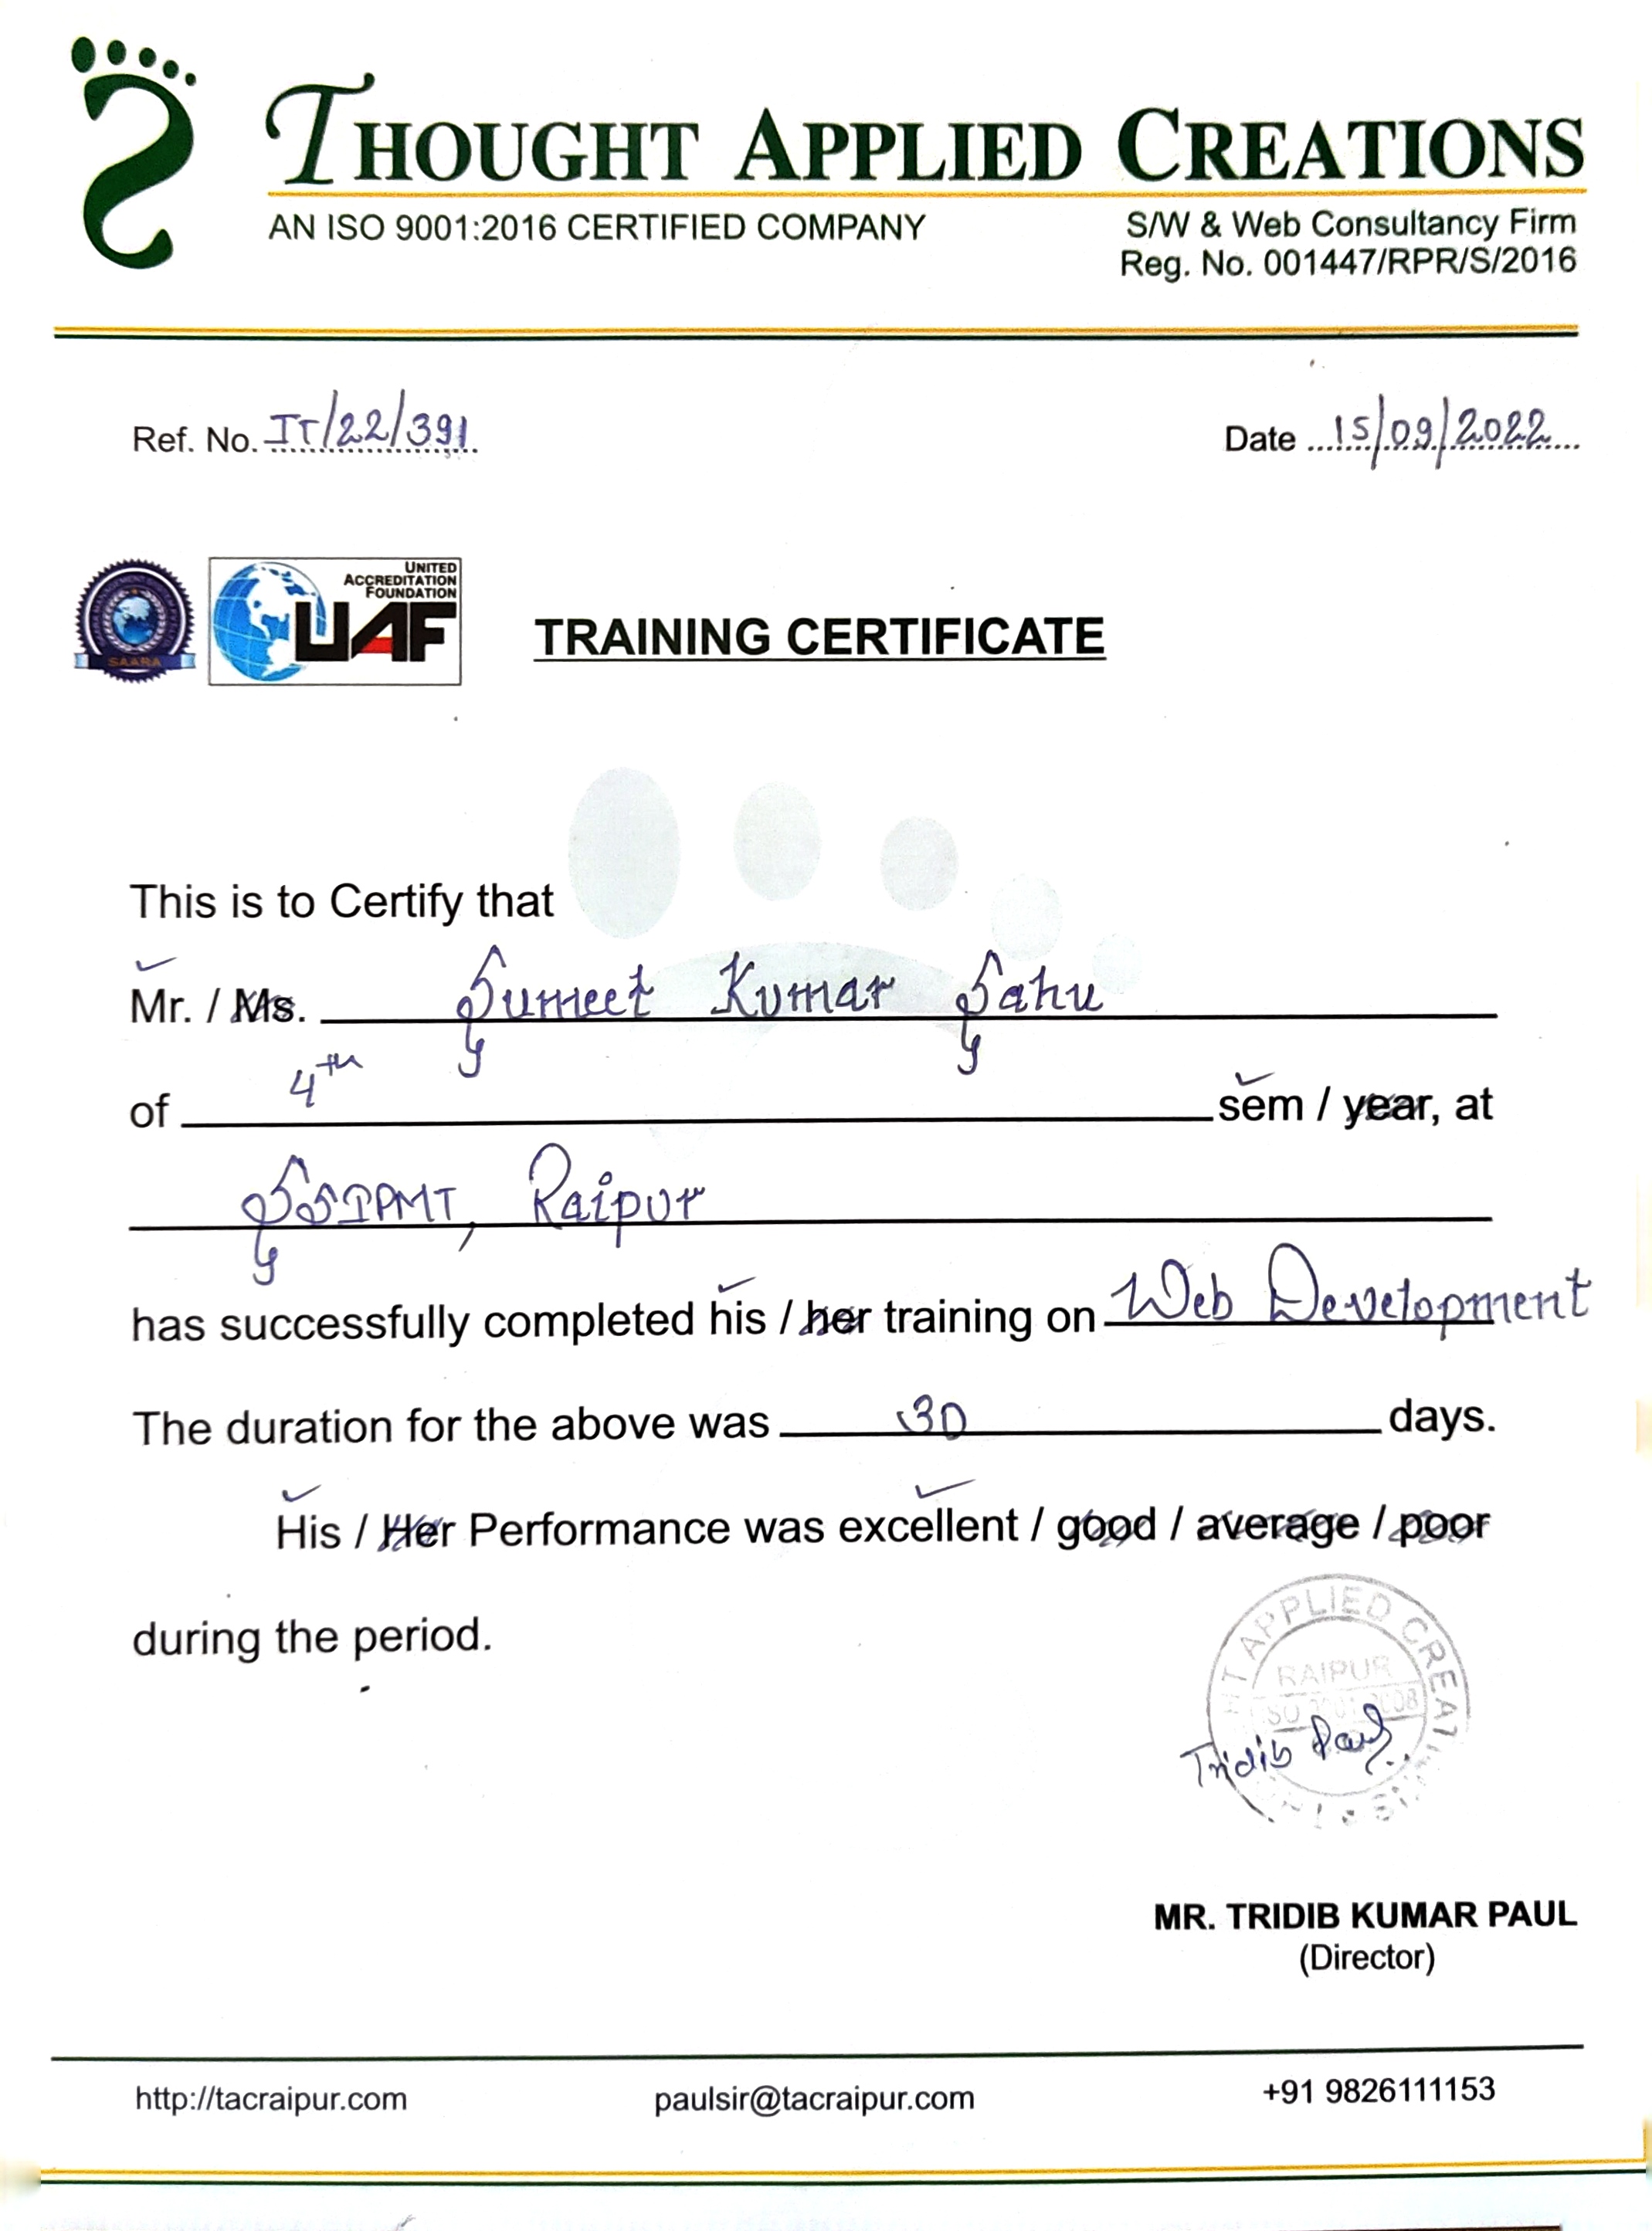 THOUGHT APPLIED CREATIONS
AN ISO 9001:2016 CERTIFIED COMPANY
S/W & Web Consultancy Firm
Reg. No. 001447/RPR/S/2016
Ref. No. IT/22/391
Date 15/09/2022
SAARA
UNITED
ACCREDITATION
FOUNDATION
UAF
TRAINING CERTIFICATE
This is to Certify that
Mr. / Ms. Sumeet Kumar Sahu
of 4th sem / year, at
SSIPMT, Raipur
has successfully completed his / her training on Web Development
The duration for the above was 30 days.
His / Her Performance was excellent / good / average / poor
during the period.
APPLIED CREATIONS
RAIPUR
Tridib Paul
MR. TRIDIB KUMAR PAUL
(Director)
http://tacraipur.com
paulsir@tacraipur.com
+91 9826111153